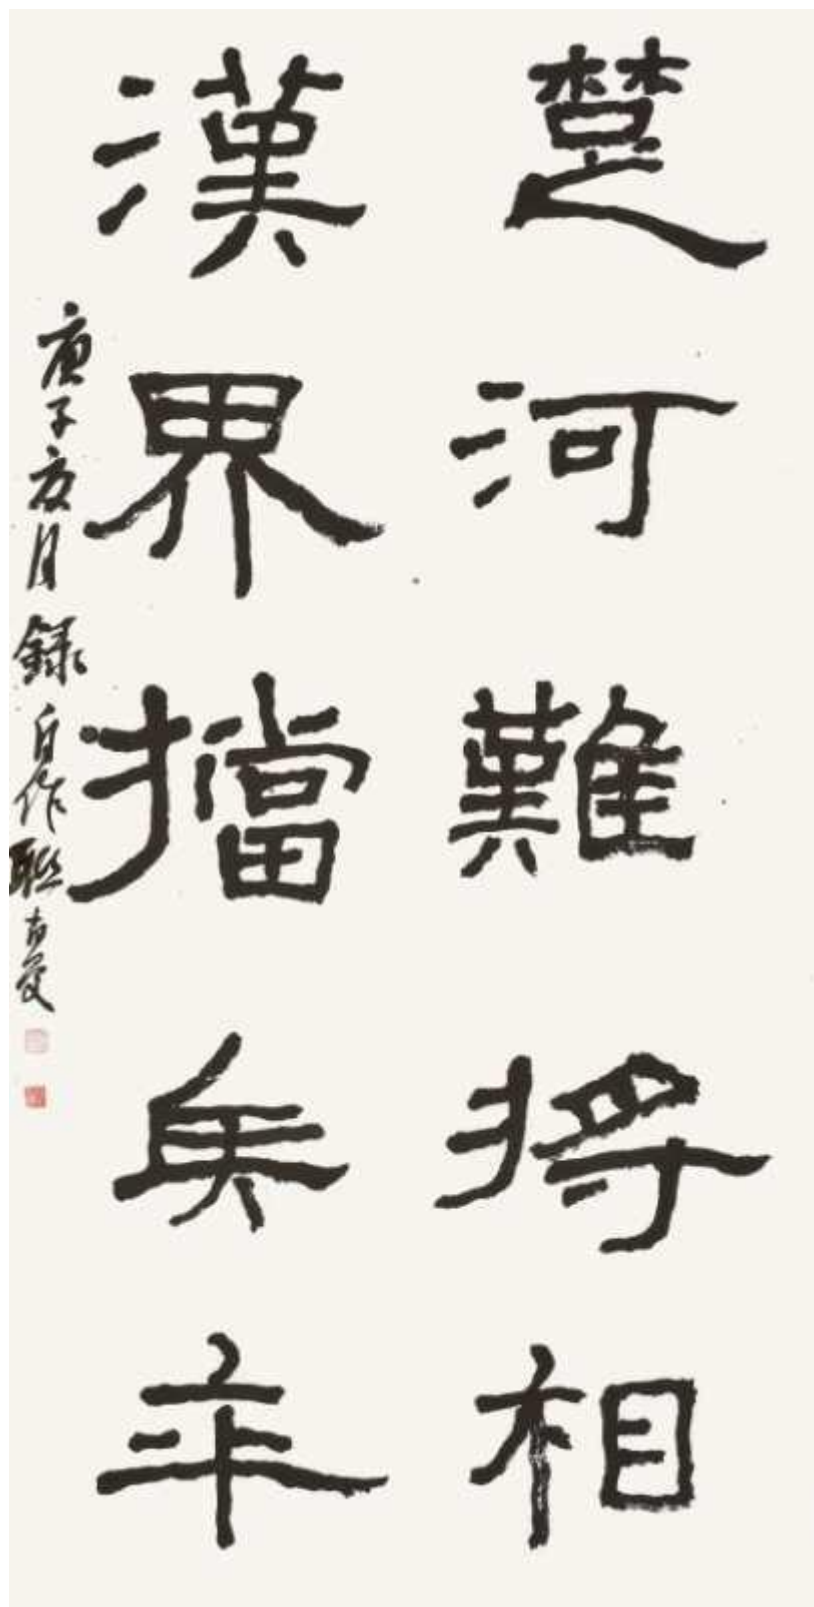 楚河難將相
漢界擋兵卒
庚子亥月錄自作聯